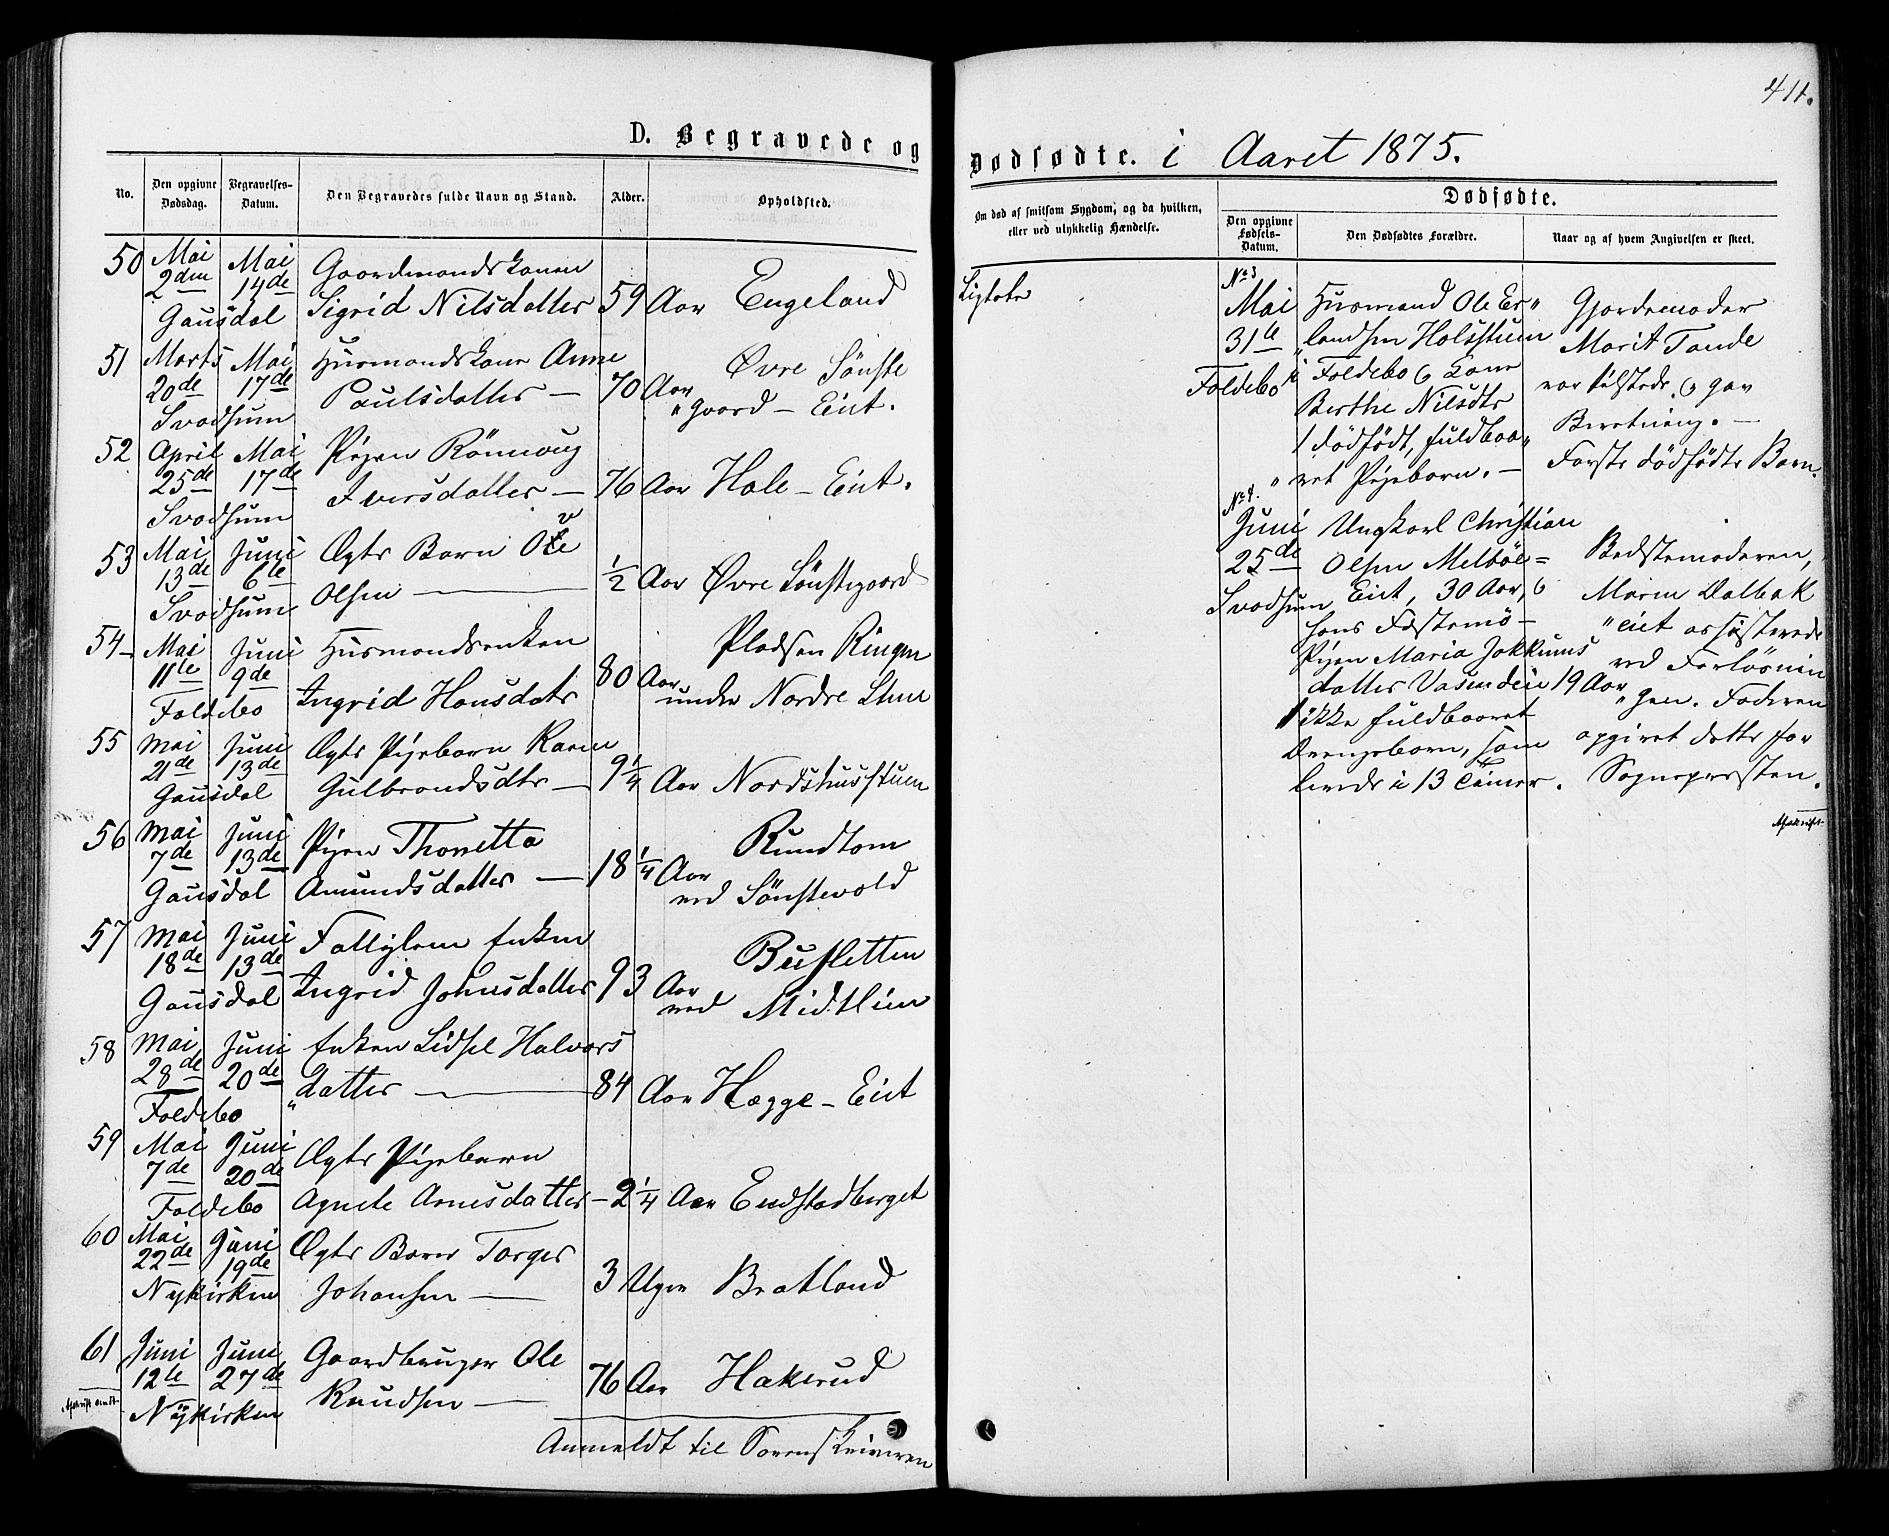 411.
D. Begravede og
Dødfødte. i Aaret 1875.
No.
Den opgivne Dødsdag.
Begravelses-Datum.
Den Begravedes fulde Navn og Stand.
Alder.
Opholdsted.
Om død af smitsom Sygdom, og da hvilken,
eller ved ulykkelig Hændelse.
Dødfødte.
Den opgivne Fødsels-Datum.
Den Dødfødtes Forældre.
Naar og af hvem Angivelsen er skeet.
50 Mai Mai Gaardmandskonen
2den 14de Sigrid Nilsdatter 59 Aar Engeland
Gausdal
51 Marts Mai Husmandskone Anne
20de 17de Paulsdatter — 70 Aar Øvre Sönste
Svadsum "gaard - Eiet.
52 April Mai Pigen Rönnoug
25de 17de Iversdatter — 76 Aar Hole - Eiet.
Svadsum
53 Mai Juni Ægte Barn
13de 6te Olsen — 1/2 Aar Øvre Sönstegaard
Svadsum
54 Mai Juni Husmandsenken Pladsen Ringen
11te 9de Ingrid Hansdatr 80 Aar under Nordre Lien
Foldebo
55 Mai Juni Ægte Pigebarn Karen
21de 13de Gulbrandsdtr — 9 1/4 Aar Nordshusstuen
Gausdal
56 Mai Juni Pigen Thonetta Rundtom
7de 13de Amundsdatter — 18 1/4 Aar ved Sönstevold
Gausdal
57 Mai Juni Fattiglem Enken
18de 13de Ingrid Johnsdatter 93 Aar
Gausdal ved Midtlien
58 Mai Juni Enken Lidsel Halvors
28de 20de "datter — 84 Aar Hægge - Eiet
Foldebo
59 Mai Juni Ægte Pigebarn
7de 20de Agnete Arnesdatter - 2 1/4 Aar Endstadberget
Foldebo
60 Mai Juni Ægte Barn Torger
22de 19de Johansen — 3 Uger Bratland
Nykirken
61 Juni Juni Gaardbruger Ole
12te 27de Knudsen — 76 Aar Hakerud
Nykirken
Anmeldt til Sorenskriveren
Ligtøte
No 3
Mai
31te
Foldebo
Husmand Ole Er"
"landsen Holsstuen
i Foldebo & Kone
Berthe Nilsdtr
1 dödfödt, fuldbaa"
"ret Pigebarn. —
Gjordemoder
Marit Tande
var tilstede & gav
Beretning. —
Første dödfödte Barn.
No 4.
Juni
25de
Svadsum
Ungkarl Christian
Olsen Melböe=
Eiet, 30 Aar, &
hans Fæstemö -
Pigen Maria Jakkums
datter Vasendeie 19 Aar
1 ikke fuldbaaret
Drengebarn, som
levede i 13 Timer.
Bedstemoderen,
Maren Dalbak
"eiet assisterede
ved Forlösnin
"gen. Faderen
opgivet dette for
Sognepresten.